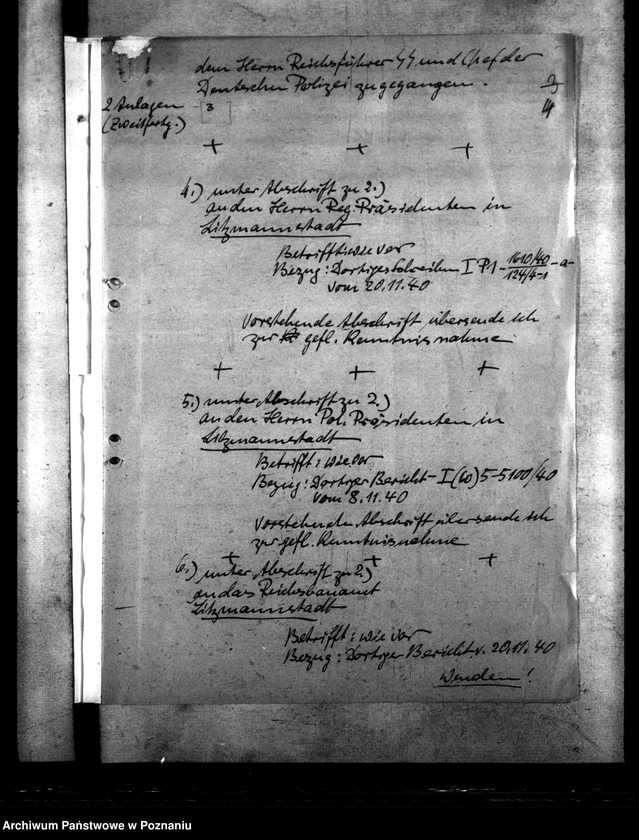 dem Herrn Reichsführer SS und Chef der
Deutschen Polizei zugegangen.
2 Anlagen
(Zweitfertg.)
3
+ + +
4.) unter Abschrift zu 2.)
an den Herrn Reg. Präsidenten in
Litzmannstadt
Betrifft: wie vor
Bezug: Dortiges Schreiben I P1 - 1610/40 - a -
124/4-1
vom 20.11.40
Vorstehende Abschrift übersende ich
zur gefl. Kenntnisnahme.
+ + +
5.) unter Abschrift zu 2.)
an den Herrn Pol. Präsidenten in
Litzmannstadt
Betrifft: wie vor
Bezug: Dortiger Bericht - I (W) 5-5100/40
vom 8.11.40
Vorstehende Abschrift übersende ich
zur gefl. Kenntnisnahme
+ + +
6.) unter Abschrift zu 2.)
an das Reichsbauamt
Litzmannstadt
Betrifft: wie vor
Bezug: Dortiger Bericht v. 20.11.40
Wenden!
Archiwum Państwowe w Poznaniu